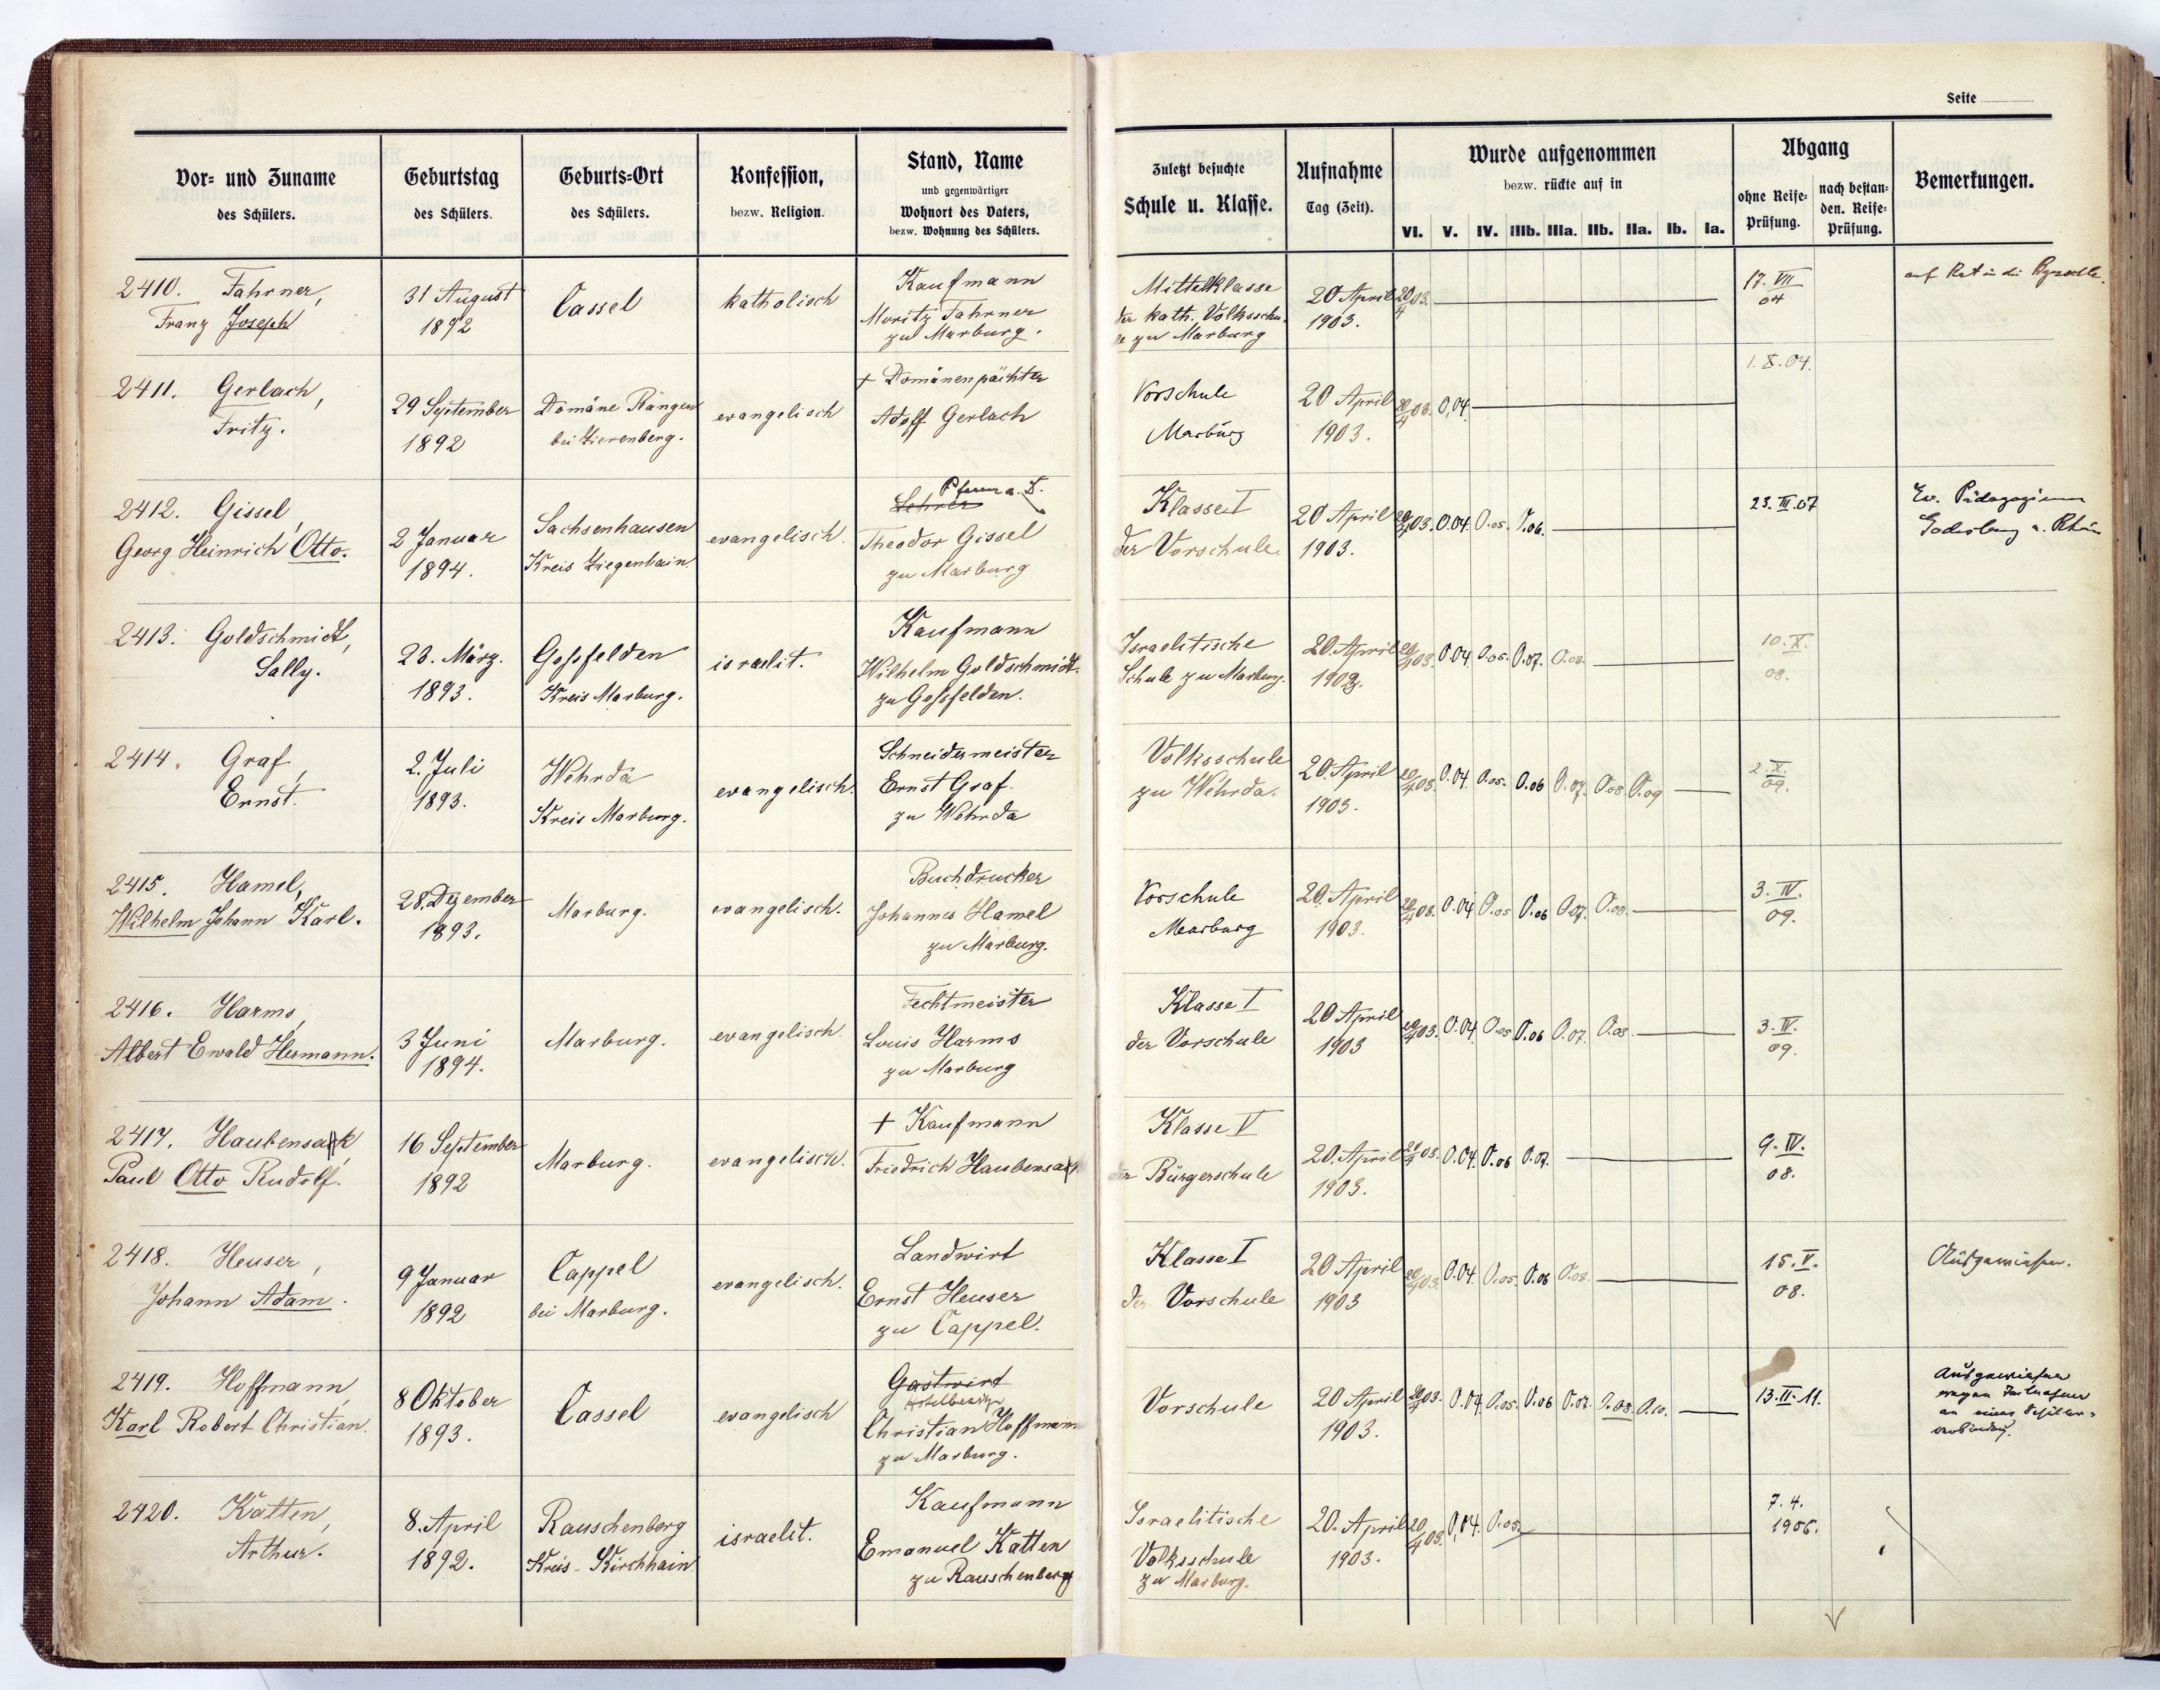 Seite
Vor- und Zuname
des Schülers.
Geburtstag
des Schülers.
Geburts-Ort
des Schülers.
Konfession,
bezw. Religion.
Stand, Name
und gegenwärtiger
Wohnort des Vaters,
bezw. Wohnung des Schülers.
Zuletzt besuchte
Schule u. Klasse.
Aufnahme
Tag (Zeit).
Wurde aufgenommen
bezw. rückte auf in
VI. V. IV. IIIb. IIIa. IIb. IIa. Ib. Ia.
Abgang
ohne Reife-
Prüfung.
nach bestan-
den. Reife-
Prüfung.
Bemerkungen.
2410. Fahrner,
Franz Joseph
31 August
1892
Cassel
katholisch
Kaufmann
Moritz Fahrner
zu Marburg.
Mittelklasse
der kath. Volksschu-
le zu Marburg
20 April
1903.
20/4 03.
17. VII
04
auf Rat in die
2411. Gerlach,
Fritz.
29 September
1892
Domäne Rangen
bei Zierenberg.
evangelisch
+ Domänenpächter
Adolf Gerlach
Vorschule
Marburg
20 April
1903.
20/4 03. O,04.
1. X. 04.
2412. Gissel,
Georg Heinrich Otto.
2 Januar
1894.
Sachsenhausen
Kreis Ziegenhain.
evangelisch.
Pfarrer a. D.
Lehrer
Theodor Gissel
zu Marburg
Klasse I
der Vorschule.
20 April
1903.
20/4 03. O.04. O.05. O.06.
23. III. 07
Ev. Pädagogium
Godesberg a. Rhein
2413. Goldschmidt,
Sally.
23. März.
1893.
Goßfelden
Kreis Marburg.
israelit.
Kaufmann
Wilhelm Goldschmidt.
zu Goßfelden.
Israelitische
Schule zu Marburg.
20. April
1903.
20/4 03. O.04. O.05. O.07. O.08.
10. X.
08.
2414. Graf,
Ernst.
2. Juli
1893.
Wehrda
Kreis Marburg.
evangelisch.
Schneidermeister
Ernst Graf.
zu Wehrda
Volksschule
zu Wehrda.
20. April
1903.
20/4 03. O.04. O.05. O.06 O.07. O.08 O.09
2. X.
09.
2415. Hamel,
Wilhelm Johann Karl.
28. Dezember
1893.
Marburg.
evangelisch.
Buchdrucker
Johannes Hamel
zu Marburg.
Vorschule
Marburg
20. April
1903.
20/4 03. O.04 O.05 O.06 O.07. O.08.
3. IV.
09.
2416. Harms,
Albert Ewald Hermann.
3 Juni
1894.
Marburg.
evangelisch.
Fechtmeister
Louis Harms
zu Marburg
Klasse I
der Vorschule
20 April
1903
20/4 03. O.04. O.05 O.06 O.07. O.08.
3. IV.
09.
2417. Haubensak,
Paul Otto Rudolf.
16 September
1892
Marburg.
evangelisch.
+ Kaufmann
Friedrich Haubensak
Klasse V
der Bürgerschule
20. April
1903.
20/4 03. O.04. O.06 O.07.
9. IV.
08.
2418. Heuser,
Johann Adam.
9 Januar
1892
Cappel
bei Marburg.
evangelisch.
Landwirt
Ernst Heuser
zu Cappel.
Klasse I
der Vorschule
20 April
1903
20/4 03. O.04. O.05. O.06 O.08.
15. V.
08.
Ausgewiesen.
2419. Hoffmann,
Karl Robert Christian.
8 Oktober
1893.
Cassel
evangelisch
Gastwirt
Hotelbesitzer
Christian Hoffmann
zu Marburg.
Vorschule
20 April
1903.
20/4 03. O.04. O.05. O.06 O.07. O.08. O.10.
13. II. 11.
Ausgewiesen
wegen Teilnahme
an einer Schüler-
verbindung.
2420. Katten,
Arthur.
8. April
1892.
Rauschenberg
Kreis- Kirchhain.
israelit.
Kaufmann
Emanuel Katten
zu Rauschenberg
Israelitische
Volksschule
zu Marburg.
20. April
1903.
20/4 03. O,04. O.05.
7. 4.
1906.